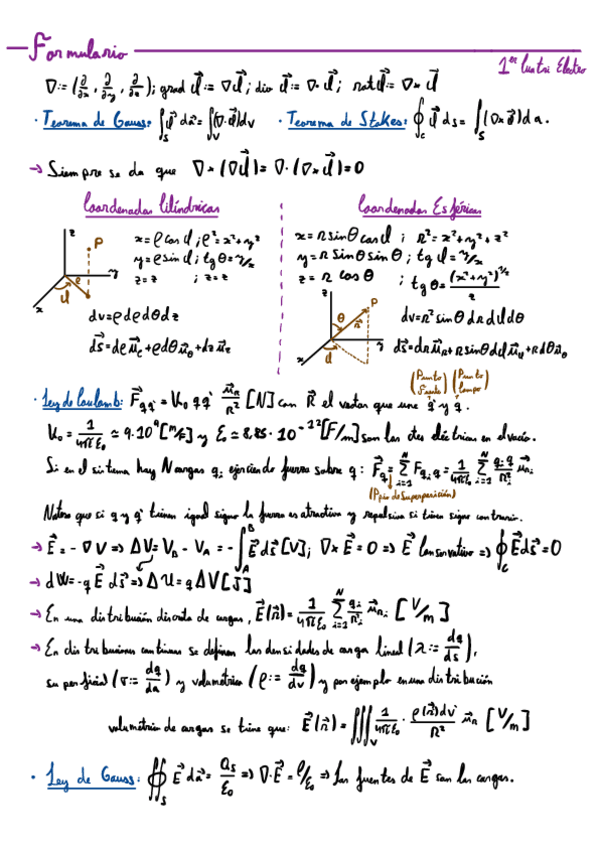 Formulario
1er Cuatri Electro
∇:= (∂/∂x, ∂/∂y, ∂/∂z); grad U⃗:= ∇U⃗; div U⃗:= ∇·U⃗; rot U⃗:= ∇×U⃗
· Teorema de Gauss: ∫_S U⃗ da⃗ = ∫_V (∇·U⃗)dv · Teorema de Stokes: ∮_C U⃗ ds = ∫_S (∇×U⃗)da.
→ Siempre se da que ∇×(∇U⃗) = ∇·(∇×U⃗) = 0
Coordenadas Cilíndricas
x = ρ cos φ; ρ² = x²+y²
y = ρ sin φ; tg θ = y/x
z = z ; z = z
dv = ρ dρ dθ dz
ds⃗ = dρ u⃗ρ + ρ dθ u⃗θ + dz u⃗z
Coordenadas Esféricas
x = R sinθ cos φ ; R² = x²+y²+z²
y = R sinθ sinθ ; tg φ = y/x
z = R cos θ ; tg θ = (x²+y²)^½/z
dv = R² sinθ dR dφ dθ
ds⃗ = dR u⃗R + R sinθ dφ u⃗φ + R dθ u⃗θ
(Punto Fuente) (Punto Campo)
· Ley de Coulomb: F⃗qq' = K₀ qq' u⃗R/R² [N] con R⃗ el vector que une q' y q.
K₀ = 1/4πε₀ ≃ 9·10⁹ [m/F] y ε₀ ≃ 8,85·10⁻¹² [F/m] son las ctes eléctricas en el vacío.
Si en el sistema hay N cargas qi ejerciendo fuerza sobre q: F⃗q = Σ_{i=1}^N Fqiq = 1/4πε₀ Σ_{i=1}^N qi q/Ri² u⃗Ri
(Ppio de Superposición)
Notar que si q y q' tienen igual signo la fuerza es atractiva y repulsiva si tienen signo contrario.
→ E⃗ = -∇V => ΔV = V_B - V_A = -∫_A^B E⃗ ds⃗ [V]; ∇×E⃗ = 0 => E⃗ Conservativo => ∮_C E⃗ds⃗ = 0
→ dW = -q E⃗ ds⃗ => ΔU = qΔV [J]
→ En una distribución discreta de cargas, E⃗(r⃗) = 1/4πε₀ Σ_{i=1}^N qi/Ri² u⃗Ri [V/m]
→ En distribuciones continuas se definen las densidades de carga lineal (λ := dq/ds),
superficial (σ := dq/da) y volumétrica (ρ := dq/dv) y por ejemplo en una distribución
volumétrica de cargas se tiene que: E⃗(r⃗) = ∭_V 1/4πε₀ · ρ(r⃗)dv'/R² u⃗R [V/m]
· Ley de Gauss: ∯_S E⃗ da⃗ = Qs/ε₀ => ∇·E⃗ = ρ/ε₀ => Las fuentes de E⃗ son las cargas.